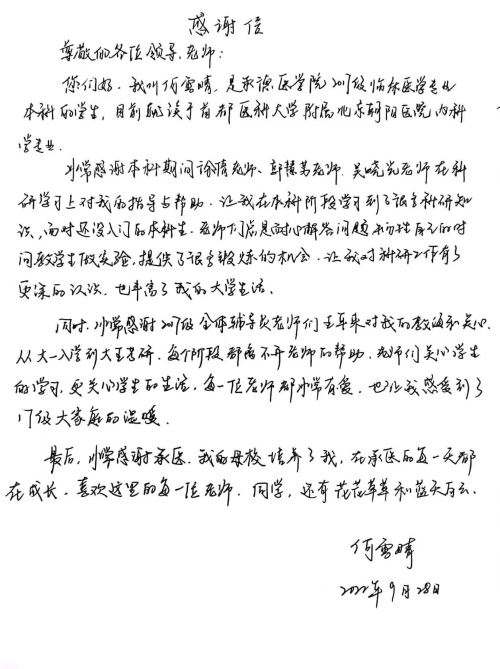 感谢信
尊敬的各位领导、老师：
你们好，我叫何雪晴，是承德医学院2017级临床医学专业
本科的学生，目前就读于首都医科大学附属北京朝阳医院内科
学专业。
非常感谢本科期间 老师、 老师、吴晓光老师在科
研学习上对我的指导与帮助，让我在本科阶段学习到了很多科研知
识，面对还没入门的本科生，老师们总是耐心解答问题、牺牲自己的时
间教学生做实验，提供了很多锻炼的机会，让我对科研工作有了
更深的认识，也丰富了我的大学生活。
同时，非常感谢2017级全体辅导员老师们五年来对我的教诲和关心，
从大一入学到大五考研，每个阶段都离不开老师的帮助，老师们关心学生
的学习，更关心学生的生活，每一位老师都非常有爱，也让我感受到了
17级大家庭的温暖。
最后，非常感谢承医，我的母校培养了我，在承医的每一天都
在成长，喜欢这里的每一位老师、同学，还有花花草草和蓝天白云。
何雪晴
2022年9月28日